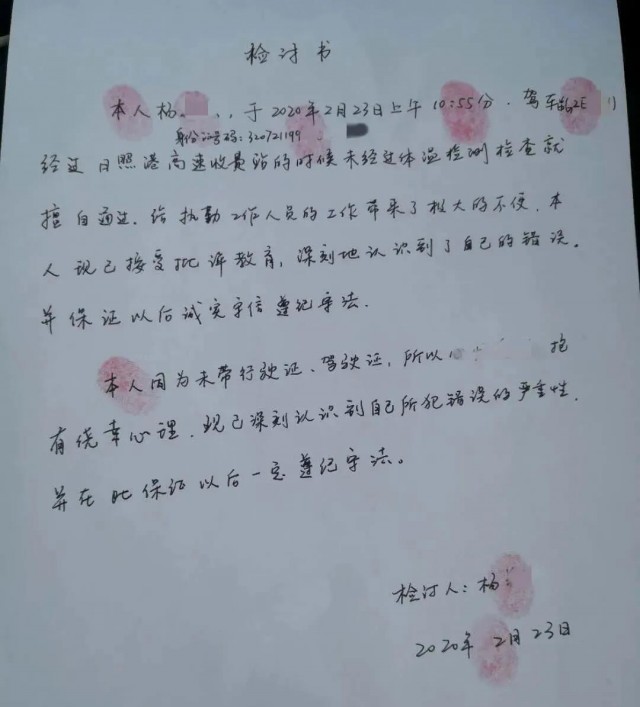 检讨书
本人杨 ,于2020年2月23日上午10:55分.驾车 2E
身份证号码:320721199
经过日照港高速收费站的时候未经过体温检测检查就
擅自通过.给执勤工作人员的工作带来了极大的不便.本
人现已接受批评教育,深刻地认识到了自己的错误。
并保证以后诚实守信遵纪守法.
本人因为未带行驶证、驾驶证,所以 抱
有侥幸心理.现已深刻认识到自己所犯错误的严重性.
并在此保证以后一定遵纪守法。
检讨人:杨
2020年2月23日